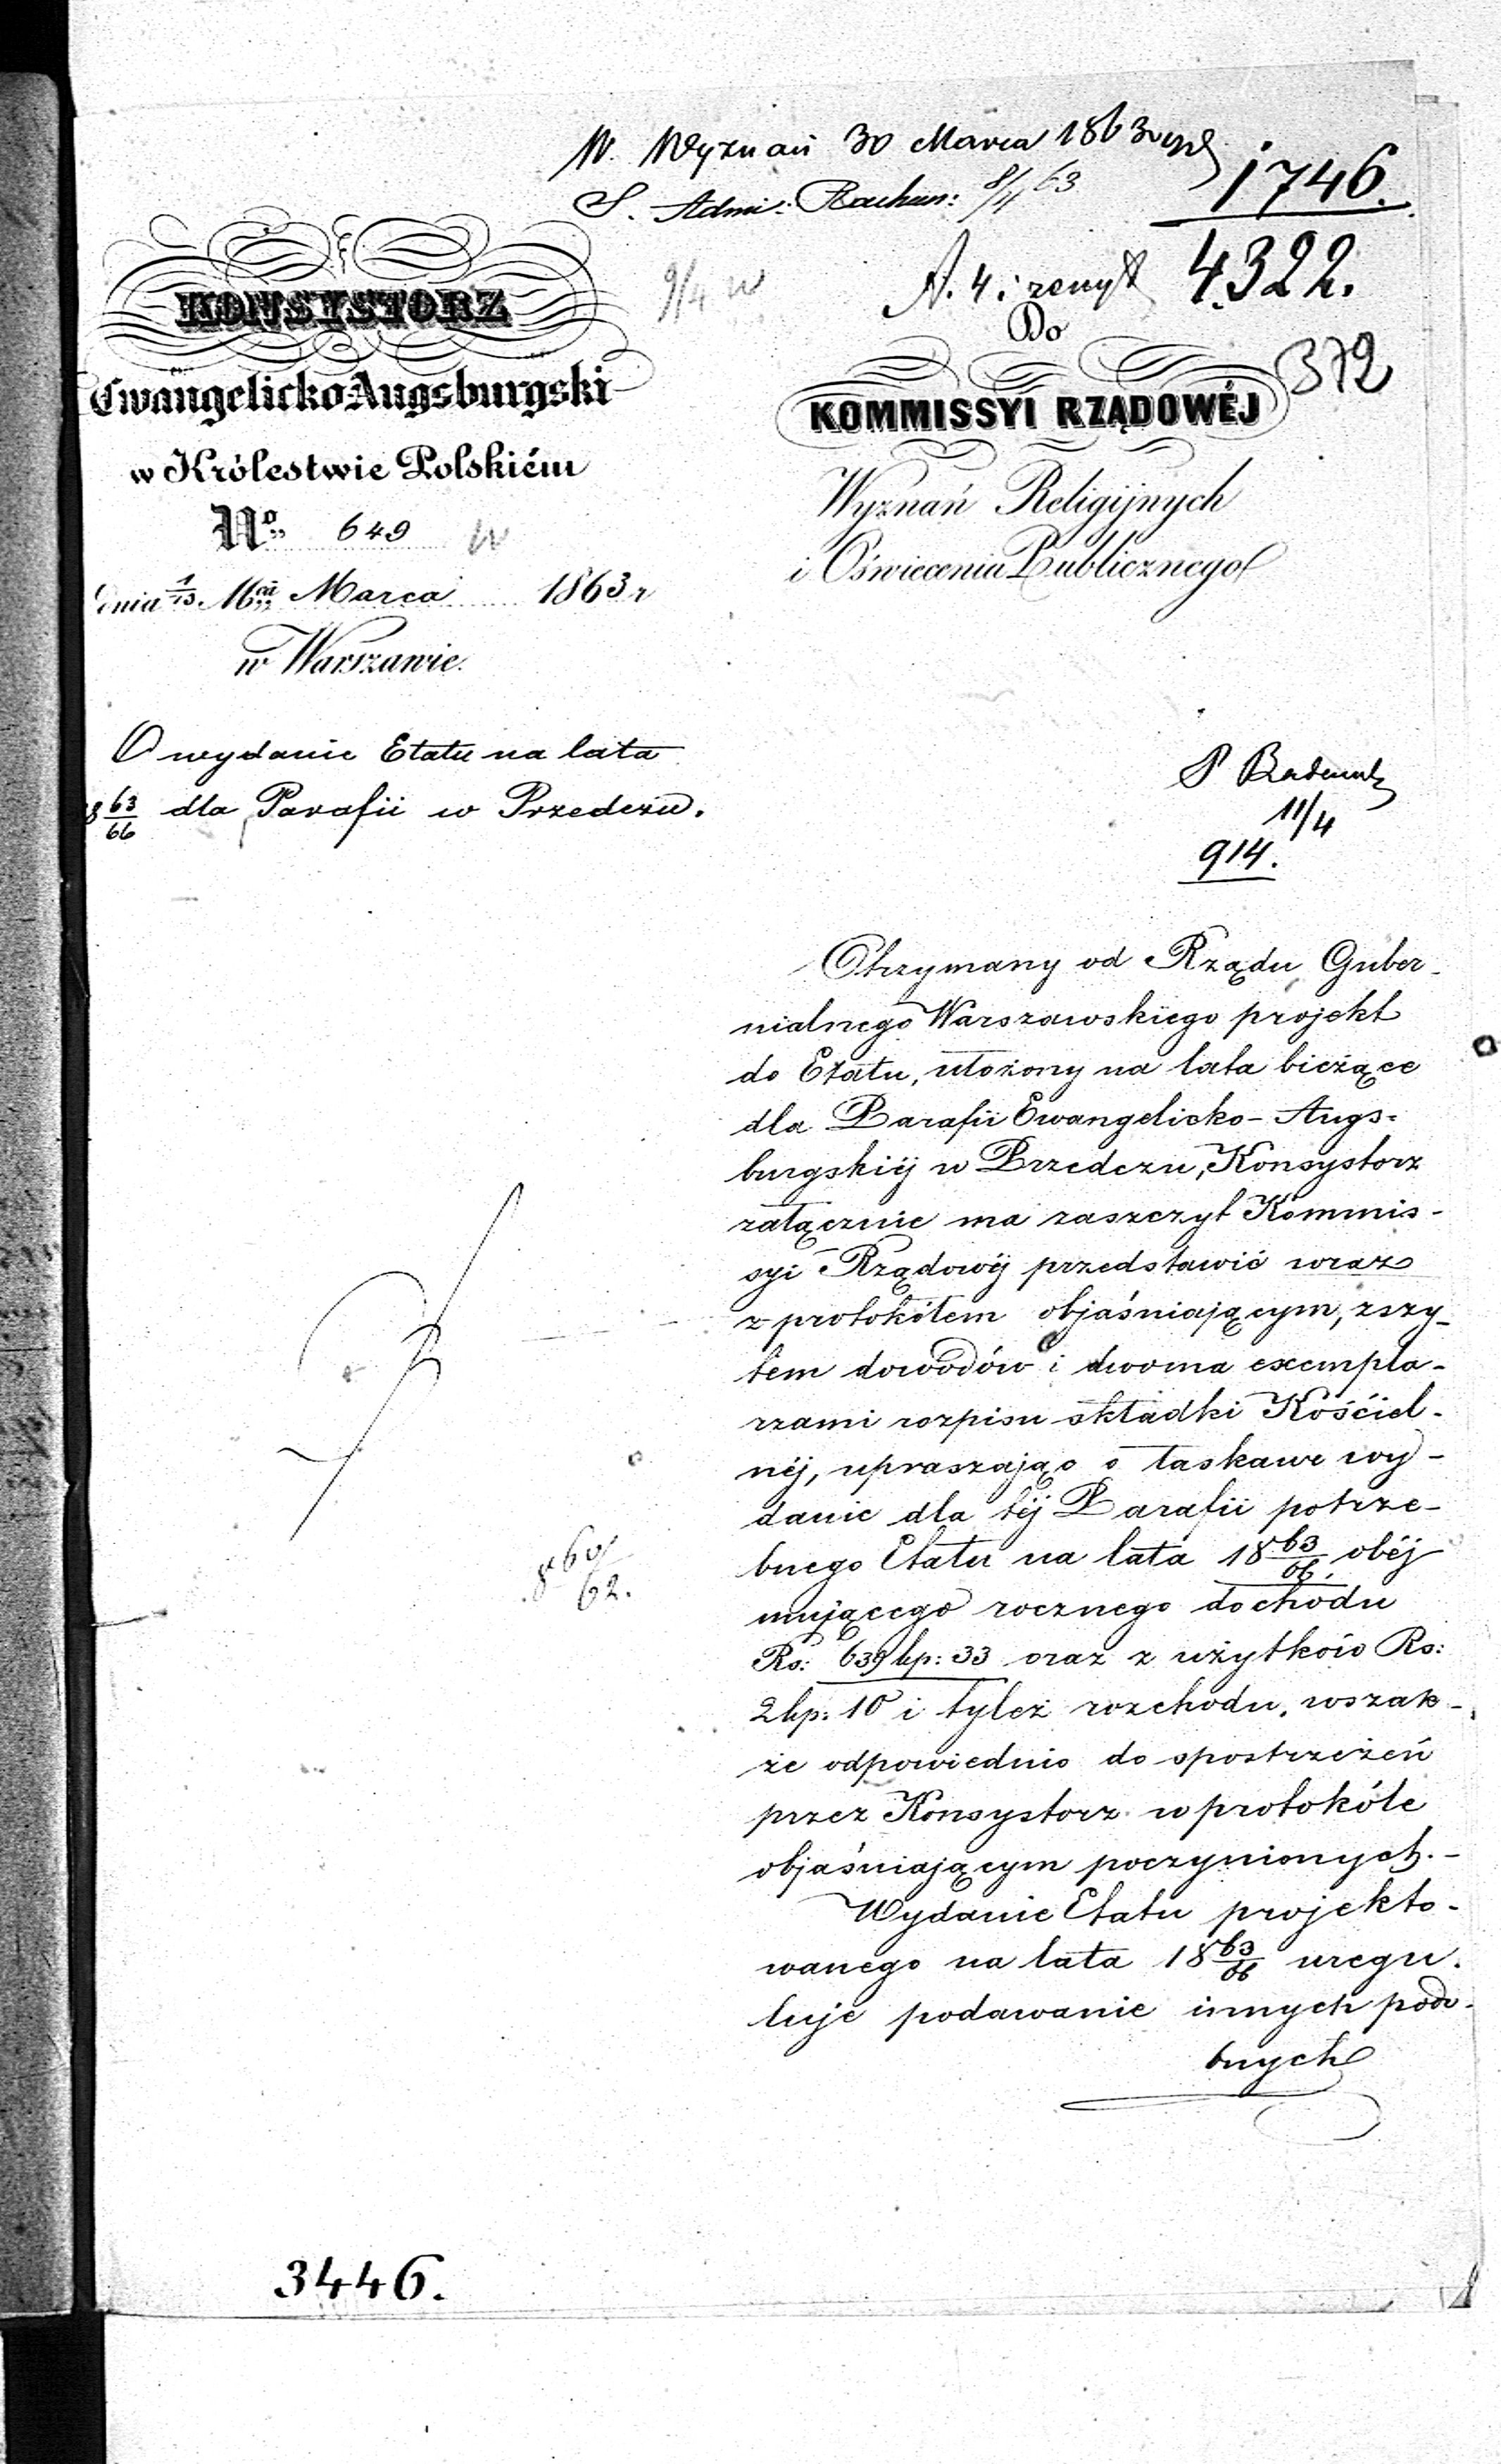 W. Wyznań 30 Marca 1863
1746.
S. Admi: Rachun: 8/4 63
9/4 W
A. 4 i zeszyt 4322.
372
KONSYSTORZ
Ewangelicko-Augsburgski
w Królestwie Polskiém
No 649
dnia 1/13 Mca Marca 1863 r
w Warszawie.
O wydanie Etatu na lata
18 63/66 dla Parafii w Przedczu.
Do
KOMMISSYI RZĄDOWÉJ
Wyznań Religijnych
i Oświecenia Publicznego
P
11/4
914.
Otrzymany od Rządu Guber-
nialnego Warszawskiego projekt
do Etatu, ułożony na lata bieżące
dla Parafii Ewangelicko-Augs-
burgskiéj w Przedczu, Konsystorz
załącznie ma zaszczyt Kommis-
syi Rządowéj przedstawić wraz
z protokółem objaśniającym, zszy-
tem dowodów i dwoma exempla-
rzami rozpisu składki Kościel-
néj, upraszając o łaskawe wy-
danie dla téj Parafii potrze-
bnego Etatu na lata 18 63/66. obéj
mującego rocznego dochodu
Rs: 639 kp: 33 oraz z użytków Rs:
2 kp: 10 i tyleż rozchodu, wszak-
że odpowiednio do spostrzeżeń
przez Konsystorz w protokóle
objaśniającym poczynionych.-
Wydanie Etatu projekto-
wanego na lata 18 63/66 uregu-
luje podawanie innych podo-
bnych
18 60/62.
3446.